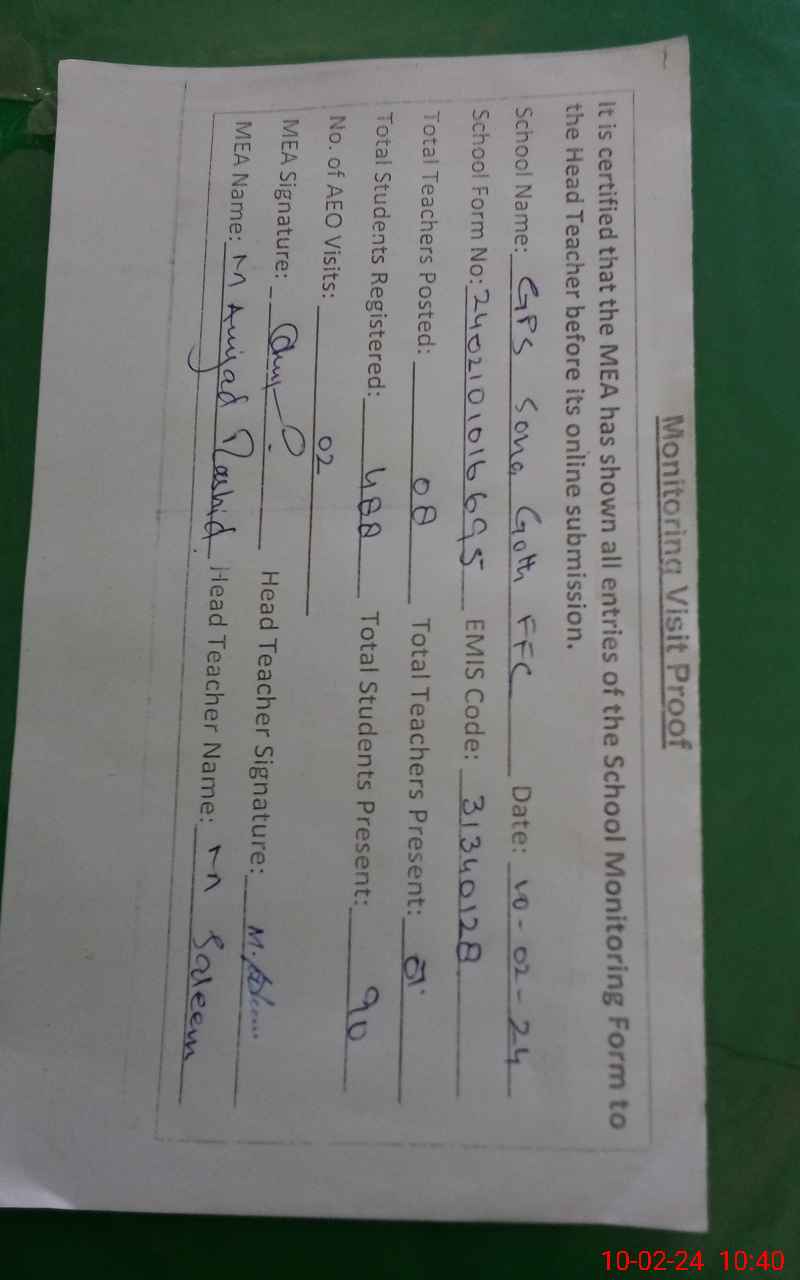 Monitoring Visit Proof
It is certified that the MEA has shown all entries of the School Monitoring Form to
the Head Teacher before its online submission.
School Name: GPS Sona Goth FFC Date: 10-02-24
School Form No: 2402101016695 EMIS Code: 31340128
Total Teachers Posted: 08 Total Teachers Present:
Total Students Registered: 488 Total Students Present: 90
No. of AEO Visits: 02
MEA Signature: Head Teacher Signature:
MEA Name: M Amjad Rashid Head Teacher Name: M Saleem
10-02-24 10:40